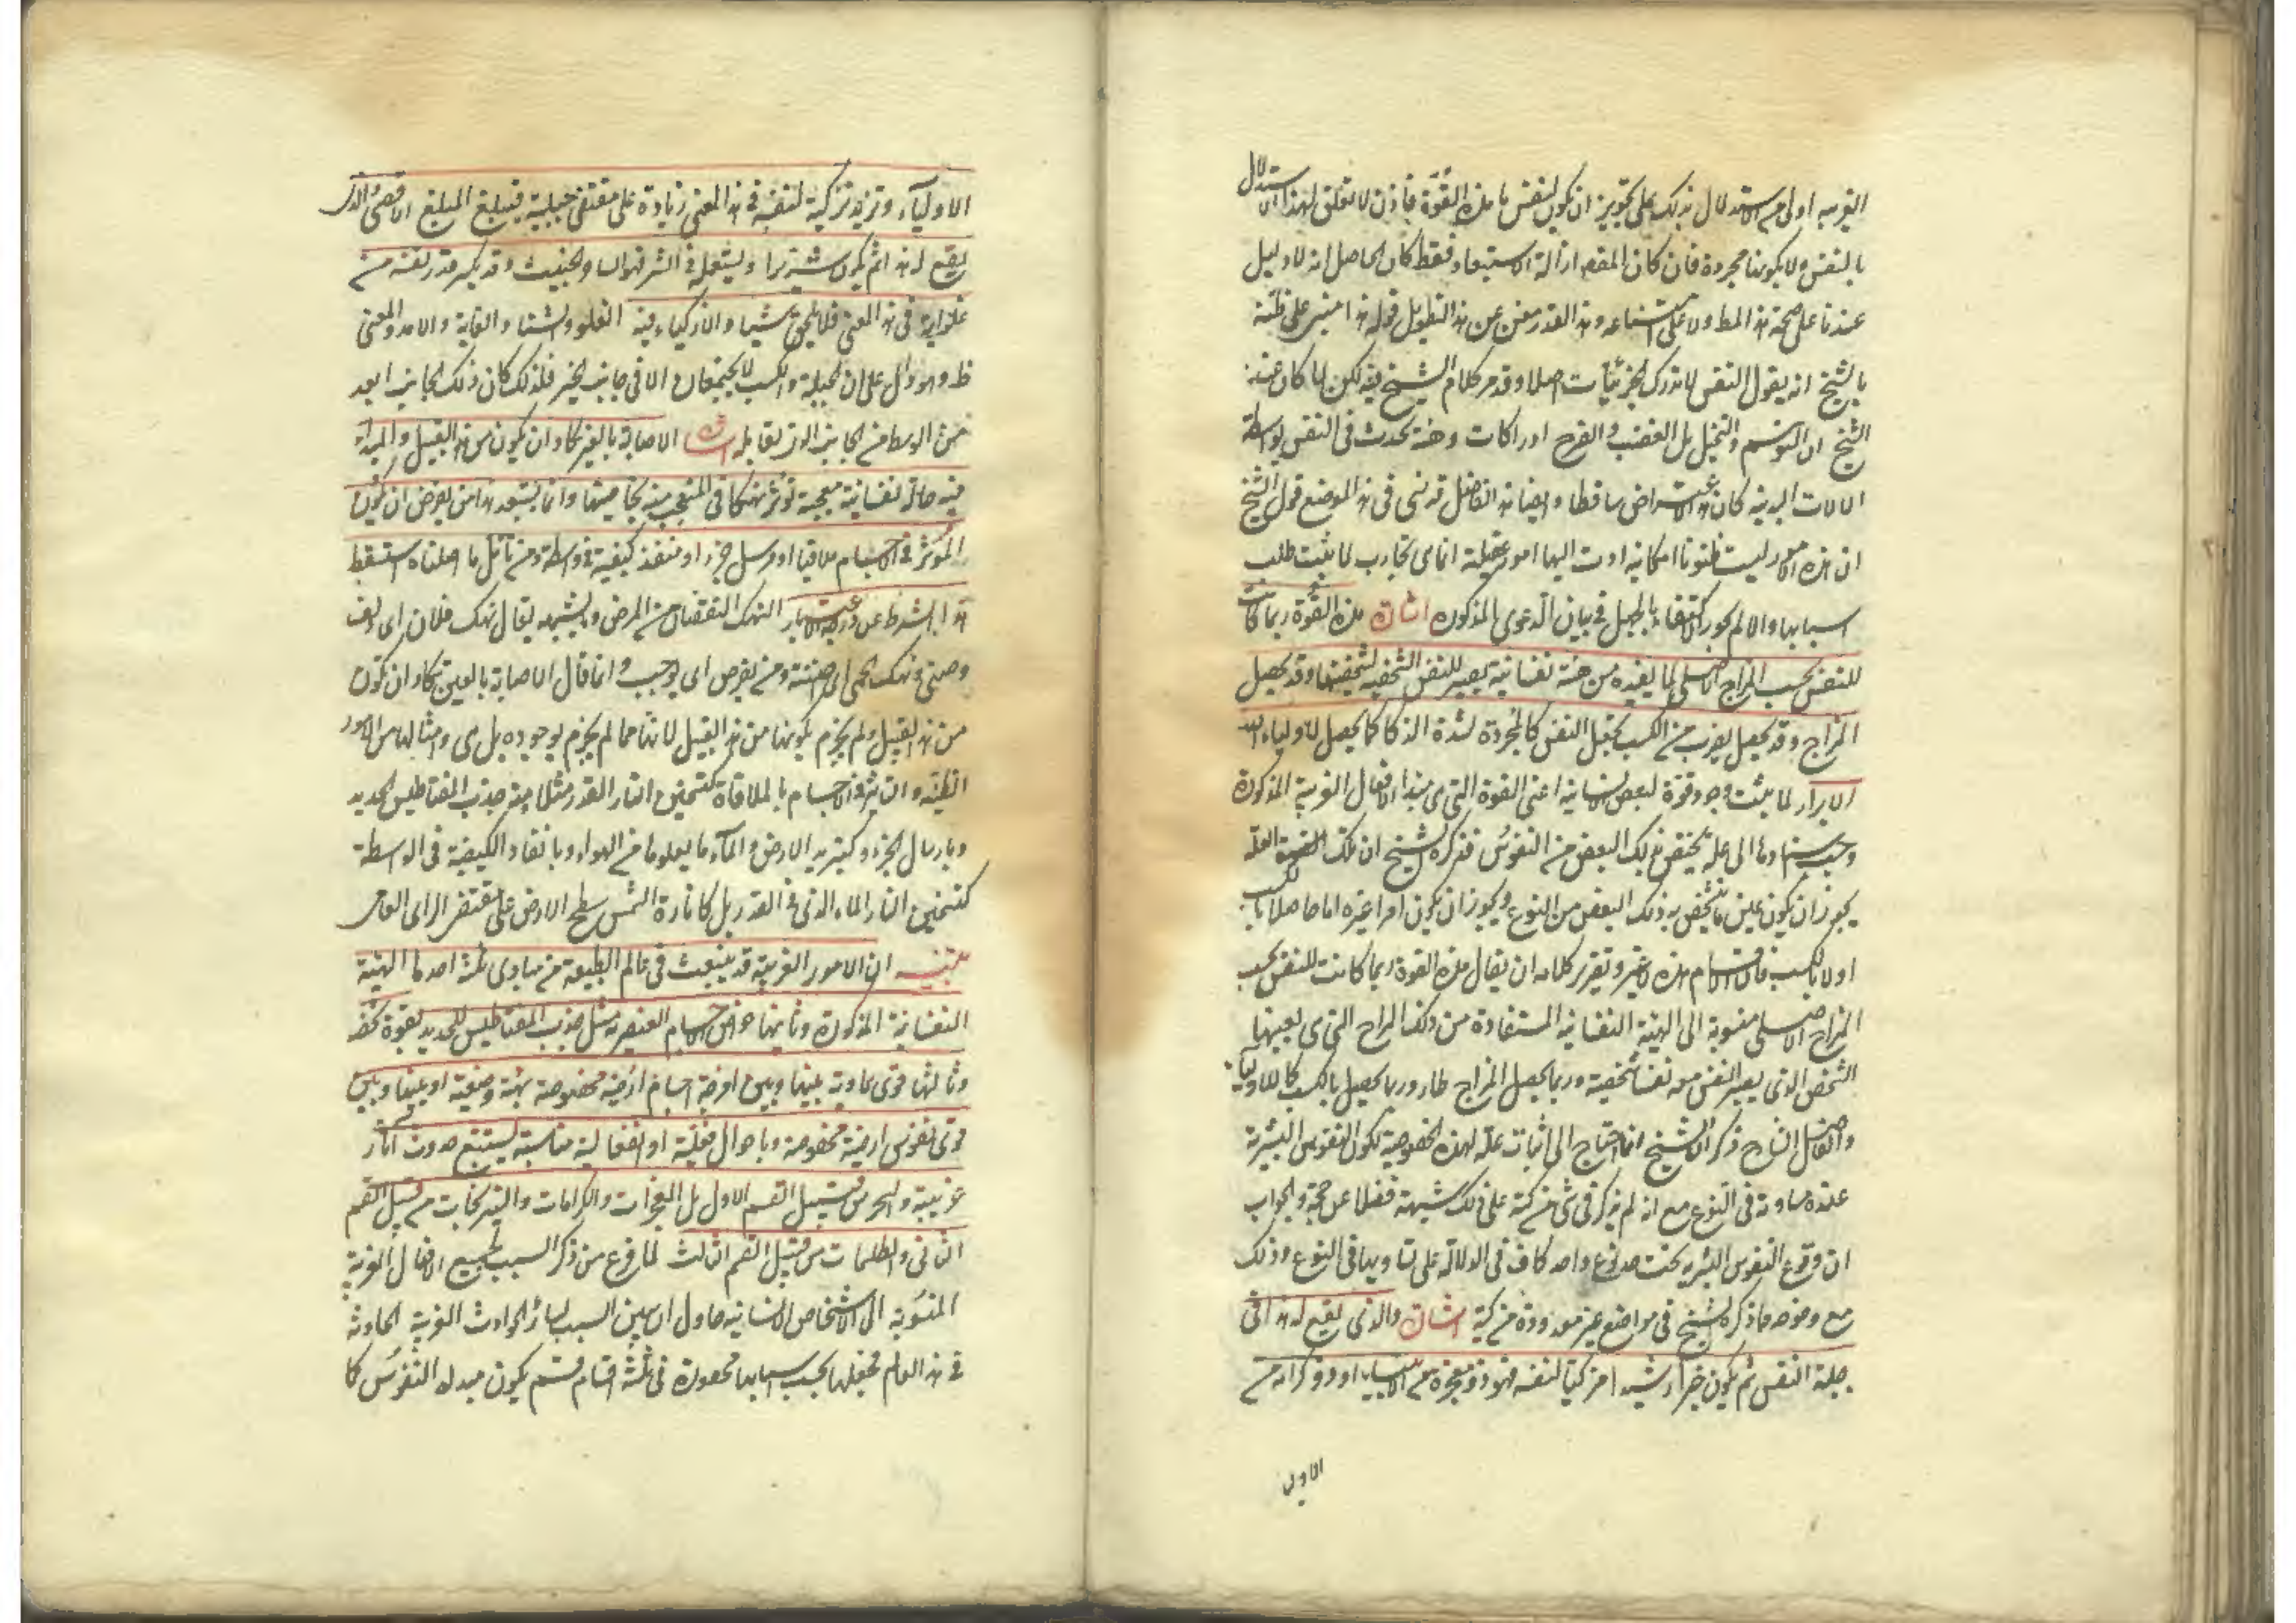 الغريبة اولى من الاستدلال بذلك على تجويز ان يكون لنفس ما هذه القوة فاذن لا تعلق لهذا الاستدلال
بالنفس ولا بكونها مجردة فان كان المقصود ازالة الاستبعاد فقط كان الحاصل انه لا دليل
عندنا على صحة هذا المط ولا على امتناعه وهذا القدر مغن عن هذا التطويل قوله هذا مبنى على ظنه
بالشيخ انه يقول النفس لا تدرك الجزئيات اصلا وقد مر كلام الشيخ فيه لكن لما كان عند
الشيخ ان التوهم والتخيل بل الغضب والفرح ادراكات وهيئة تحدث فى النفس بواسطة
الالات البدنية كان هذا الاعتراض ساقطا وايضا هذا الفاضل قد نسى فى هذا الموضع قول الشيخ
ان هذه الامور ليست ظنونا امكانية ادت اليها امور عقلية انما هى تجارب لما ثبتت طلب
اسبابها والا لم يجوز الاكتفاء بالجهل فى بيان الدعوى المذكورة اشارة هذه القوة ربما كانت
للنفس بحسب المزاج الاصلى لما يفيده من هيئة نفسانية يصير للنفس الشخصية تشخصها وقد يحصل
المزاج وقد يحصل بضرب من الكسب يجعل النفس كالمجردة لشدة الذكا كما يحصل لاولياء الله
الابرار لما ثبت وجود قوة لبعض النفوس الانسانية اعنى القوة التى هى مبدا الافعال الغريبة المذكورة
وجب اسنادها الى علة تختص بذلك البعض من النفوس فذكر الشيخ ان تلك العلة
يجوز ان يكون عين ما تشخص به ذلك البعض من النوع ويجوز ان يكون امرا غيره اما حاصلا بالكسب
او لا بالكسب فالاقسام هذه لا غير وتقرير كلامه ان يقال هذه القوة ربما كانت للنفس بحسب
المزاج الاصلى منسوبة الى الهيئة النفسانية المستفادة من ذلك المزاج التى هى بعينها
الشخص الذى يصير النفس معه نفسا شخصية وربما يحصل المزاج طار وربما يحصل بالكسب كما للاولياء
والفاضل الشارح ذكر ان الشيخ انما احتاج الى اثبات علة لهذه الخصوصية لكون النفوس البشرية
عنده متساوية فى النوع مع انه لم يذكر فى شى من كتبه على ذلك شبهة فضلا عن حجة والجواب
ان وقوع النفوس البشرية تحت حد نوع واحد كاف فى الدلالة على تساويها فى النوع وذلك
مع وضوحه فما ذكره الشيخ فى مواضع غير معدودة من كتبه اشارة والذى يقع له هذا فى
جبلة النفس ثم يكون خيرا رشيدا مزكيا لنفسه فهو ذو معجزة من الانبياء او ذو كرامة من
الاولى
الاولياء وتزيد تزكيته لنفسه فى هذا المعنى زيادة على مقتضى جبلته فيبلغ المبلغ الاقصى والذى
يقع له هذا ثم يكون شريرا ويستعمله فى الشر فهو الساحر الخبيث وقد يكسر قدر نفسه من
غلوايه فى هذا المعنى فلا يلحق شيئا والازكياء فيه الغلو والشتا والغاية والامد والمعنى
ظ وهو دال على ان الجبلة والكسب لا يجتمعان الا فى جانب الخير فلذلك كان ذلك الجانب ابعد
من الوسط من الجانب الذى يقابله اشارة الاصابة بالعين كاد ان يكون من هذا القبيل والمبدأ
فيه حالة نفسانية معجبة تؤثر نهكا فى المتعجب منه بخاصيتها وانما يستبعد هذا من يفرض ان يكون
المؤثر فى الاجسام ملاقيا او مرسل جزء او منفذ كيفية فى واسطة ومن تأمل ما اصلناه استسقط
هذا الشرط عن درجة الاعتبار النهك النقصان من المرض وما يشبهه يقال نهك فلان اى دنف
وضنى ونهكته الحمى اى اضنته ومن يفرض اى يوجب وانما قال الاصابة بالعين تكاد ان تكون
من هذا القبيل ولم يجزم بكونها من هذا القبيل لانها مما لم يجزم بوجوده بل هى وامثالها من الامور
الظنية والتاثير فى الاجسام بالملاقاة كتسخين النار القدر مثلا ومنه جذب المغناطيس الحديد
وبارسال الجزء وكتبريد الارض والماء ما يعلوها من الهواء وبانفاذ الكيفية فى الواسطة
كتسخين النار الماء الذى فى القدر بل كانارة الشمس سطح الارض على مقتضى الراى العامى
تنبيه ان الامور الغريبة قد ينبعث فى عالم الطبيعة من مبادى ثلثة احدها الهيئة
النفسانية المذكورة وثانيها خواص الاجسام العنصرية مثل جذب المغناطيس للحديد بقوة تخصه
وثالثها قوى سماوية بينها وبين امزجة اجسام ارضية مخصوصة بهيئة وضعية او بينها وبين
قوى نفوس ارضية مخصوصة باحوال فعلية او انفعالية مناسبة يستتبع حدوث اثار
غريبة والسحر من قبيل القسم الاول بل المعجزات والكرامات والنيرنجات من قبيل القسم
الثانى والطلسمات من قبيل القسم الثالث لما فرغ من ذكر السبب لجميع الافعال الغريبة
المنسوبة الى الاشخاص الانسانية حاول ان يبين السبب لسائر الحوادث الغريبة الحادثة
فى هذا العالم فجعلها بحسب اسبابها محصورة فى ثلثة اقسام قسم يكون مبدءه النفوس كما